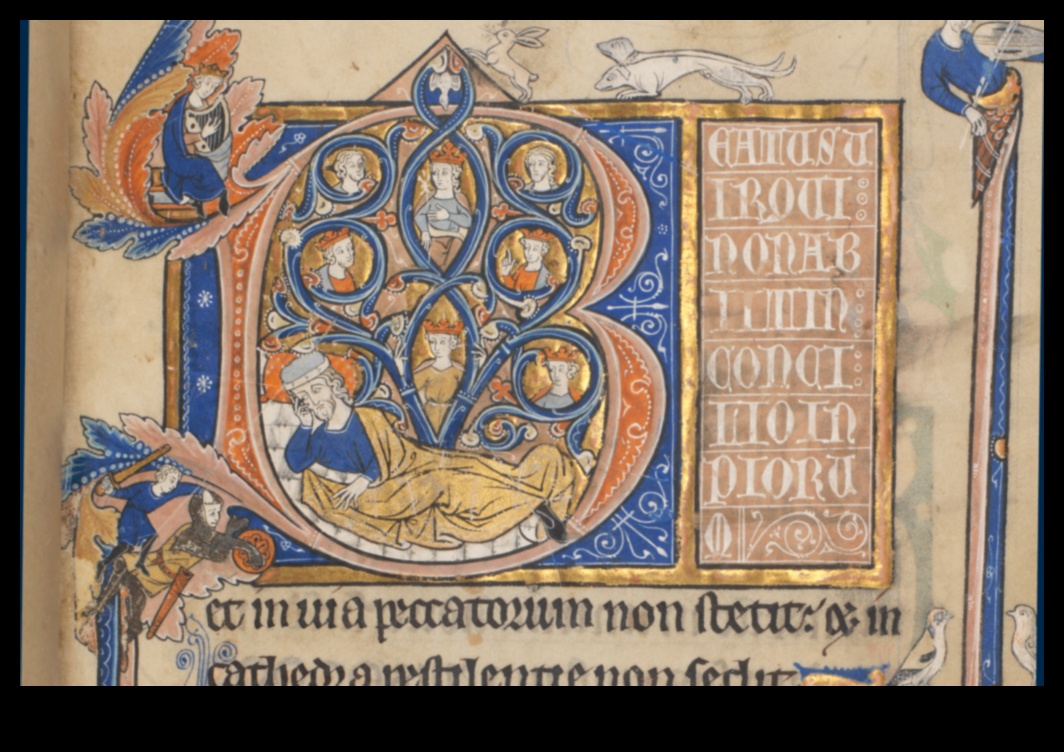 B
EATUS U
IR QUI
NON AB
IIT IN
CONCI
LIO IN
PIORU
M
et in uia peccatorum non stetit: & in
cathedra pestilentie non sedit